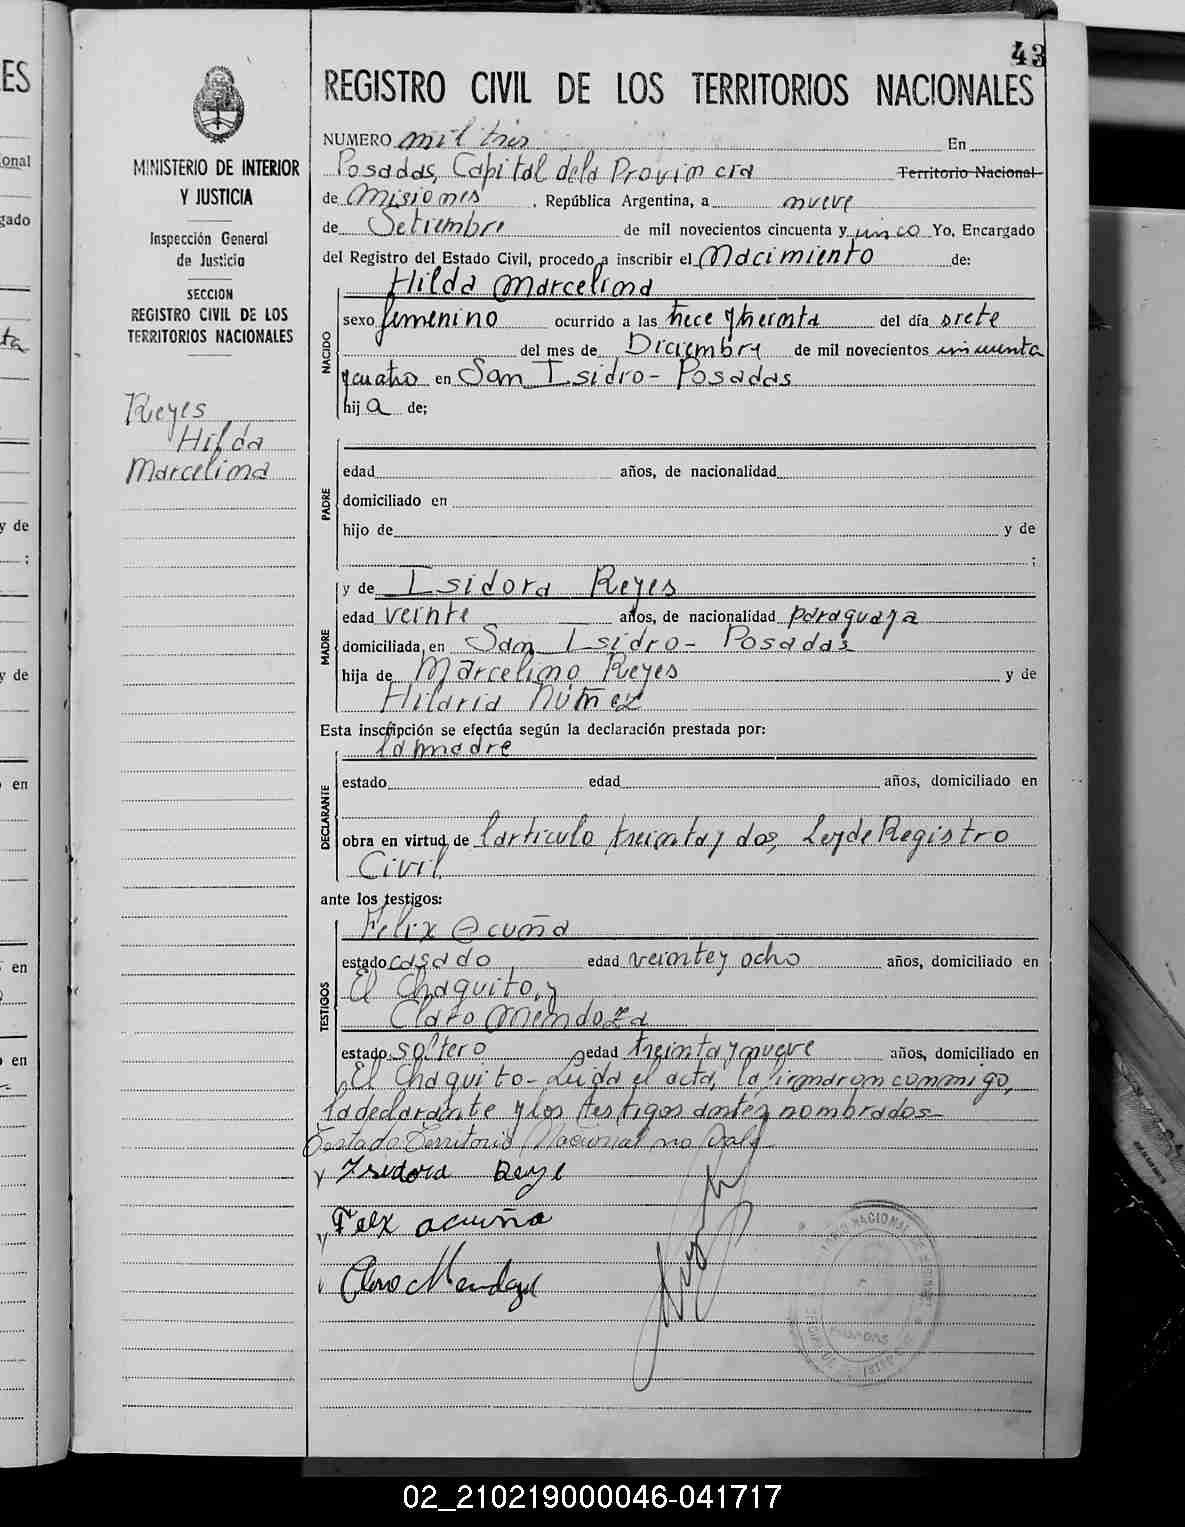 43
REGISTRO CIVIL DE LOS TERRITORIOS NACIONALES
MINISTERIO DE INTERIOR
Y JUSTICIA
Inspección General
de Justicia
SECCION
REGISTRO CIVIL DE LOS
TERRITORIOS NACIONALES
Reyes
Hilda
Marcelina
NUMERO mil tres En
Posadas, Capital dela Provincia Territorio Nacional
de Misiones, República Argentina, a nueve
de Setiembre de mil novecientos cincuenta y cinco Yo, Encargado
del Registro del Estado Civil, procedo a inscribir el Nacimiento de:
Hilda Marcelina
NACIDO
sexo femenino ocurrido a las trece y treinta del día siete
del mes de Diciembre de mil novecientos cincuenta
y cuatro en San Isidro - Posadas
hij a de;
PADRE
edad años, de nacionalidad
domiciliado en
hijo de y de
;
y de Isidora Reyes
MADRE
edad veinte años, de nacionalidad paraguaya
domiciliada en San Isidro - Posadas
hija de Marcelino Reyes y de
Hilaria Núñez
Esta inscripción se efectúa según la declaración prestada por:
la madre
DECLARANTE
estado edad años, domiciliado en
obra en virtud de l'articulo treinta y dos, Ley de Registro
Civil
ante los testigos:
Felix Acuña
TESTIGOS
estado casado edad veinte y ocho años, domiciliado en
El Chaquito, y
Claro Mendoza
estado soltero edad treinta y nueve años, domiciliado en
El Chaquito - Leida el acta, la firmaron conmigo,
la declarante y los testigos antes nombrados -
Testado: Territorio Nacional no Vale
Isidora Reye
Felix acuña
Claro Mendoza
POSADAS
02_210219000046-041717
ES
onal
gado
ta
y de
;
y de
en
en
en